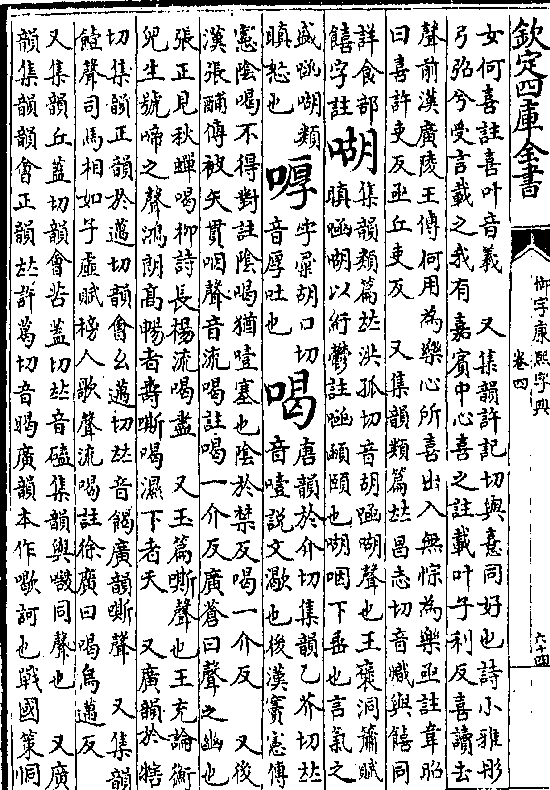 欽定四庫全書
御定康熙字典
卷四
六十四
女何喜註喜叶音義　又集韻許記切與憙同好也詩小雅彤
弓弨兮受言載之我有嘉賓中心喜之註載叶子利反喜讀去
聲前漢廣陵王傳何用為樂心所喜出入無悰為樂亟註韋昭
曰喜許吏反亟丘吏反　又集韻類篇𠀤昌志切音熾與饎同
詳食部
饎字註 㗅 集韻類篇𠀤洪孤切音胡㗅聲也王襃洞簫賦
瞋㖤㗅以紆鬱註㖤顄頤也㗅咽下垂也言氣之
盛㖤㗅類
瞋怒也 㖃 字彙胡口切
音厚吐也 喝 唐韻於介切集韻乙芥切𠀤
音噎說文㵣也後漢竇憲傳
憲陰喝不得對註陰喝猶噎塞也陰於禁反喝一介反　又後
漢張酺傳被矢貫咽聲音流喝註喝一介反廣蒼曰聲之幽也
張正見秋蟬喝柳詩長楊流喝盡　又玉篇嘶聲也王充論衡
兒生號啼之聲鴻朗高暢者壽嘶喝濕下者夭　又廣韻於犗
切集韻正韻於邁切韻會幺邁切𠀤音餲廣韻嘶聲　又集韻
𩜾聲司馬相如子虛賦榜人歌聲流喝註徐廣曰喝烏邁反
又集韻丘蓋切韻會苦蓋切𠀤音磕集韻與嘅同聲也　又廣
韻集韻韻會正韻𠀤許葛切音曷廣韻本作㰤訶也戰國策恫